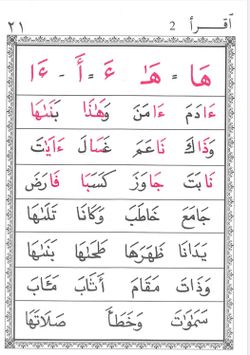 ٢١ أقرأ 2
هَا = هَـٰ ءَ = أَ - ءَا
ءَادَمَ ءَامَنَ وَهَـٰذَا بَنَىٰهَا
وَذَاكَ نَاعَمَ غَسَالَ ءَايَـٰتَ
نَابَتَ جَاوَزَ كَسَبَا فَارَضَ
جَامَعَ خَاطَبَ وَكَانَا تَلَىٰهَا
يَدَانَا ظَهَرَهَا طَحَىٰهَا بَنَىٰهَا
وَذَاتَ مَقَامَ أَثَابَ مَـَٔابَ
سَمَـٰوَٰتَ وَخَطَأً صَلَاتَهَا